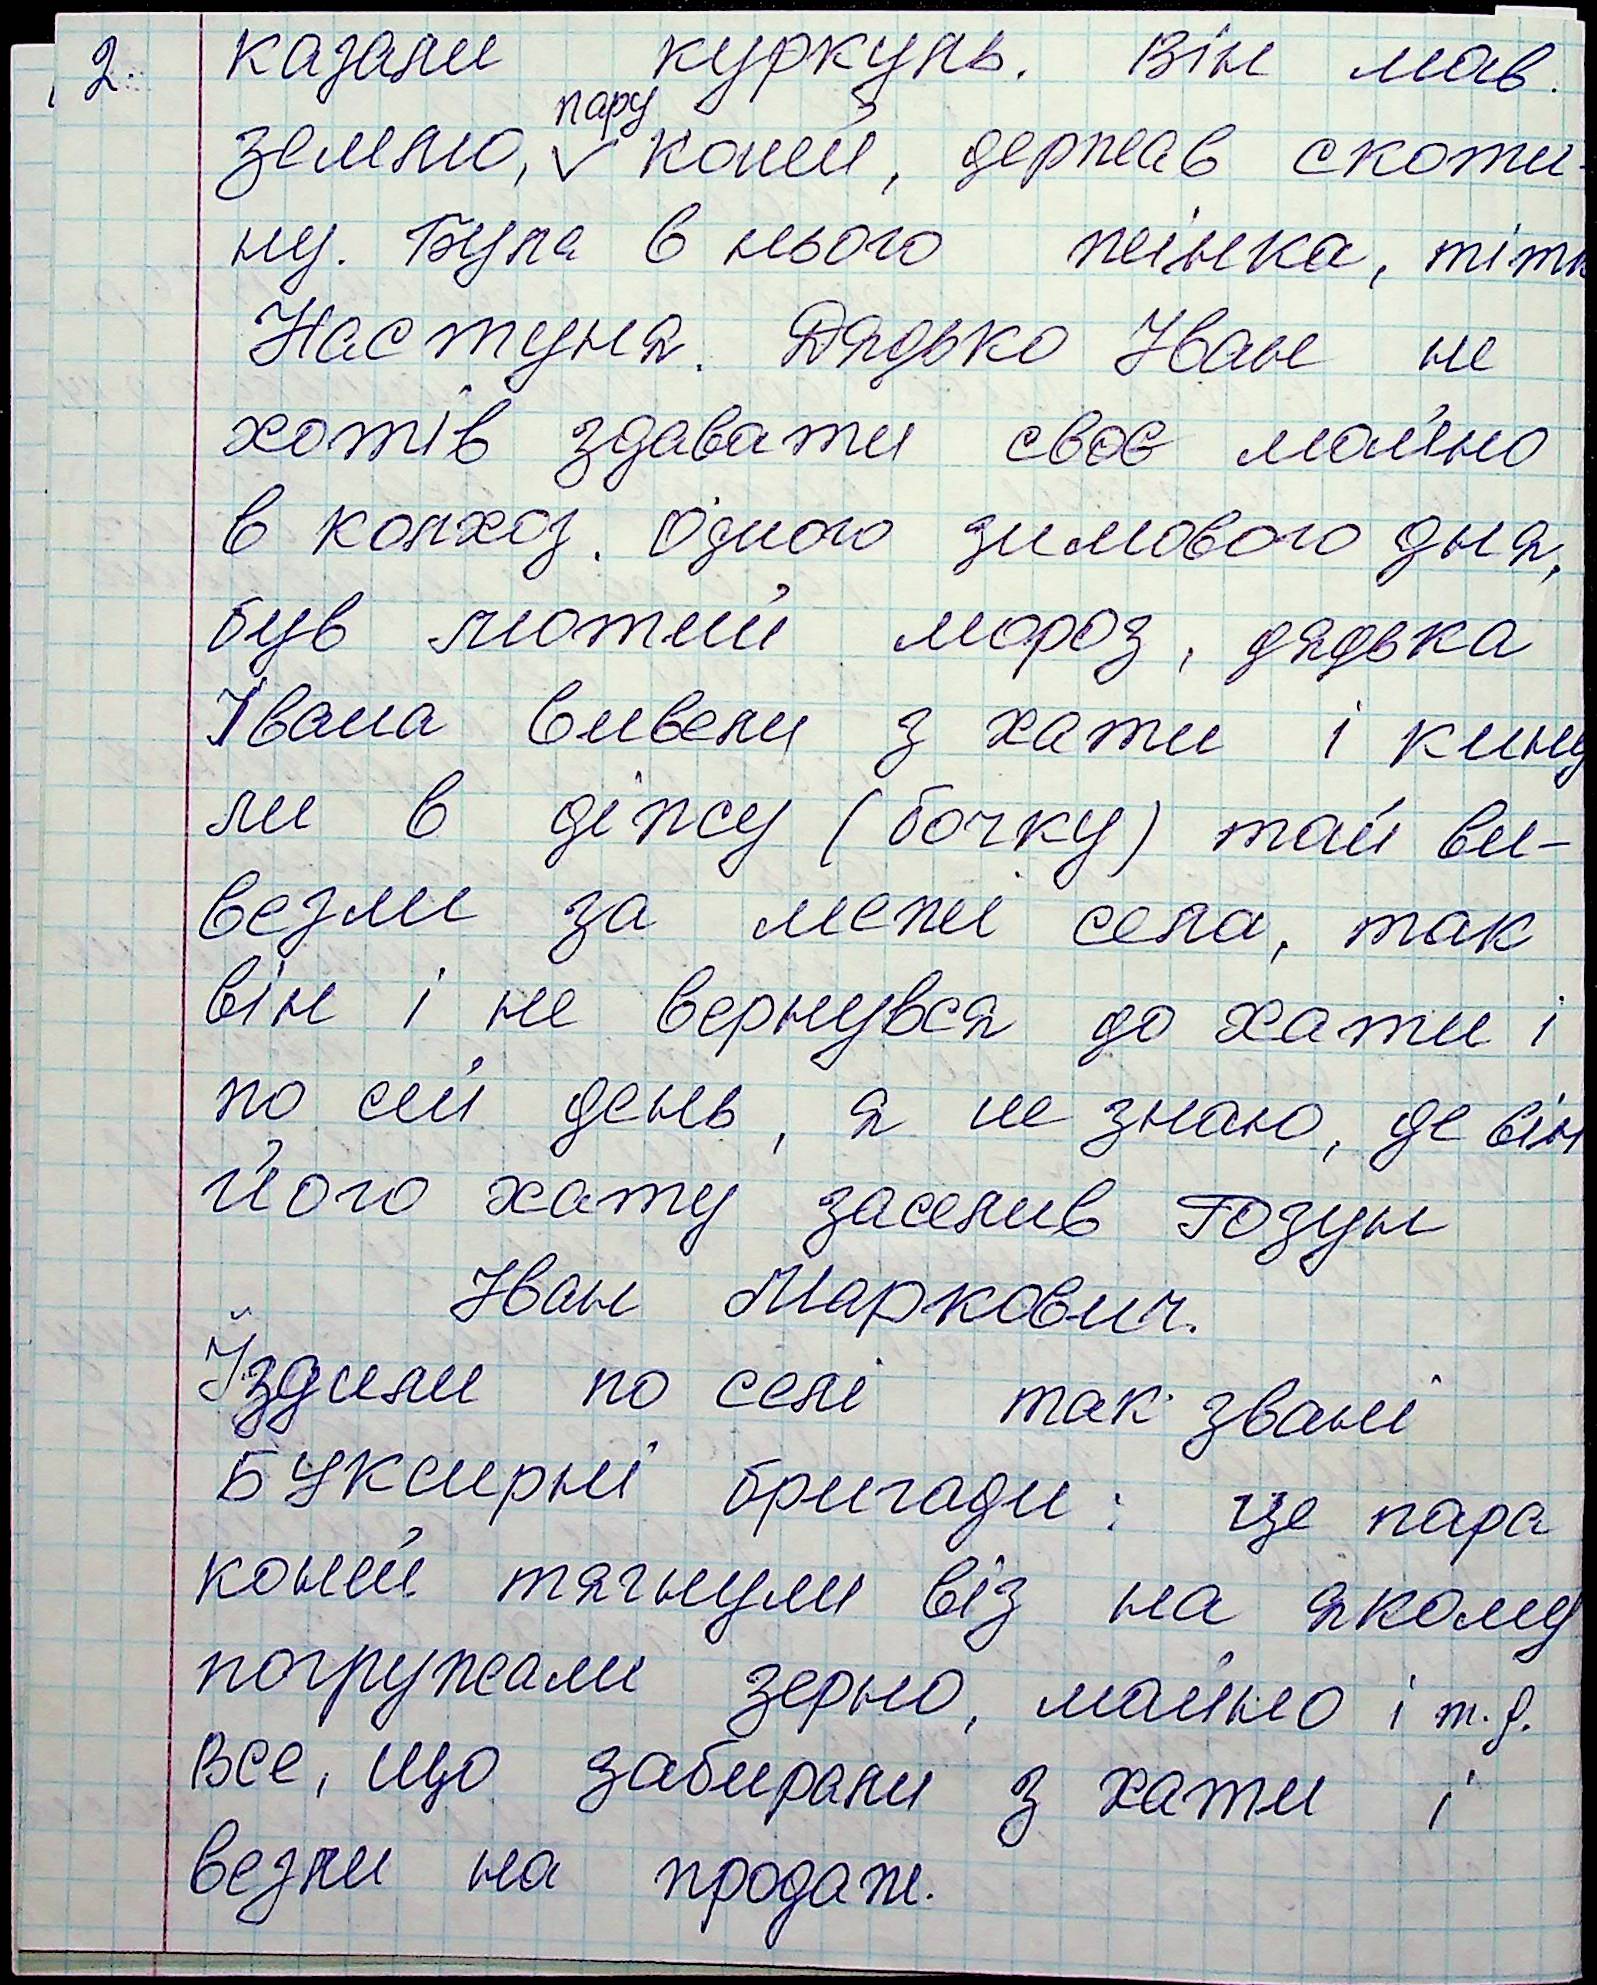 2. казали куркуль. Він мав
землю, пару коней, держав скоти-
ну. Була в нього жінка, тітк
Настуня. Дядько Іван не
хотів здавати своє майно
в колхоз. Одного зимового дня,
був лютий мороз, дядька
Івана вивели з хати і кину
ли в діжу (бочку) тай ви-
везли за межі села, так
він і не вернувся до хати і
по сей день, я не знаю, де він
Його хату заселив Гозун
Іван Маркович.
Їздили по селі так звані
Буксирні бригади: це пара
коней тягнули віз на якому
погружали зерно, майно і т.д.
Все, що забирали з хати і
везли на продаж.